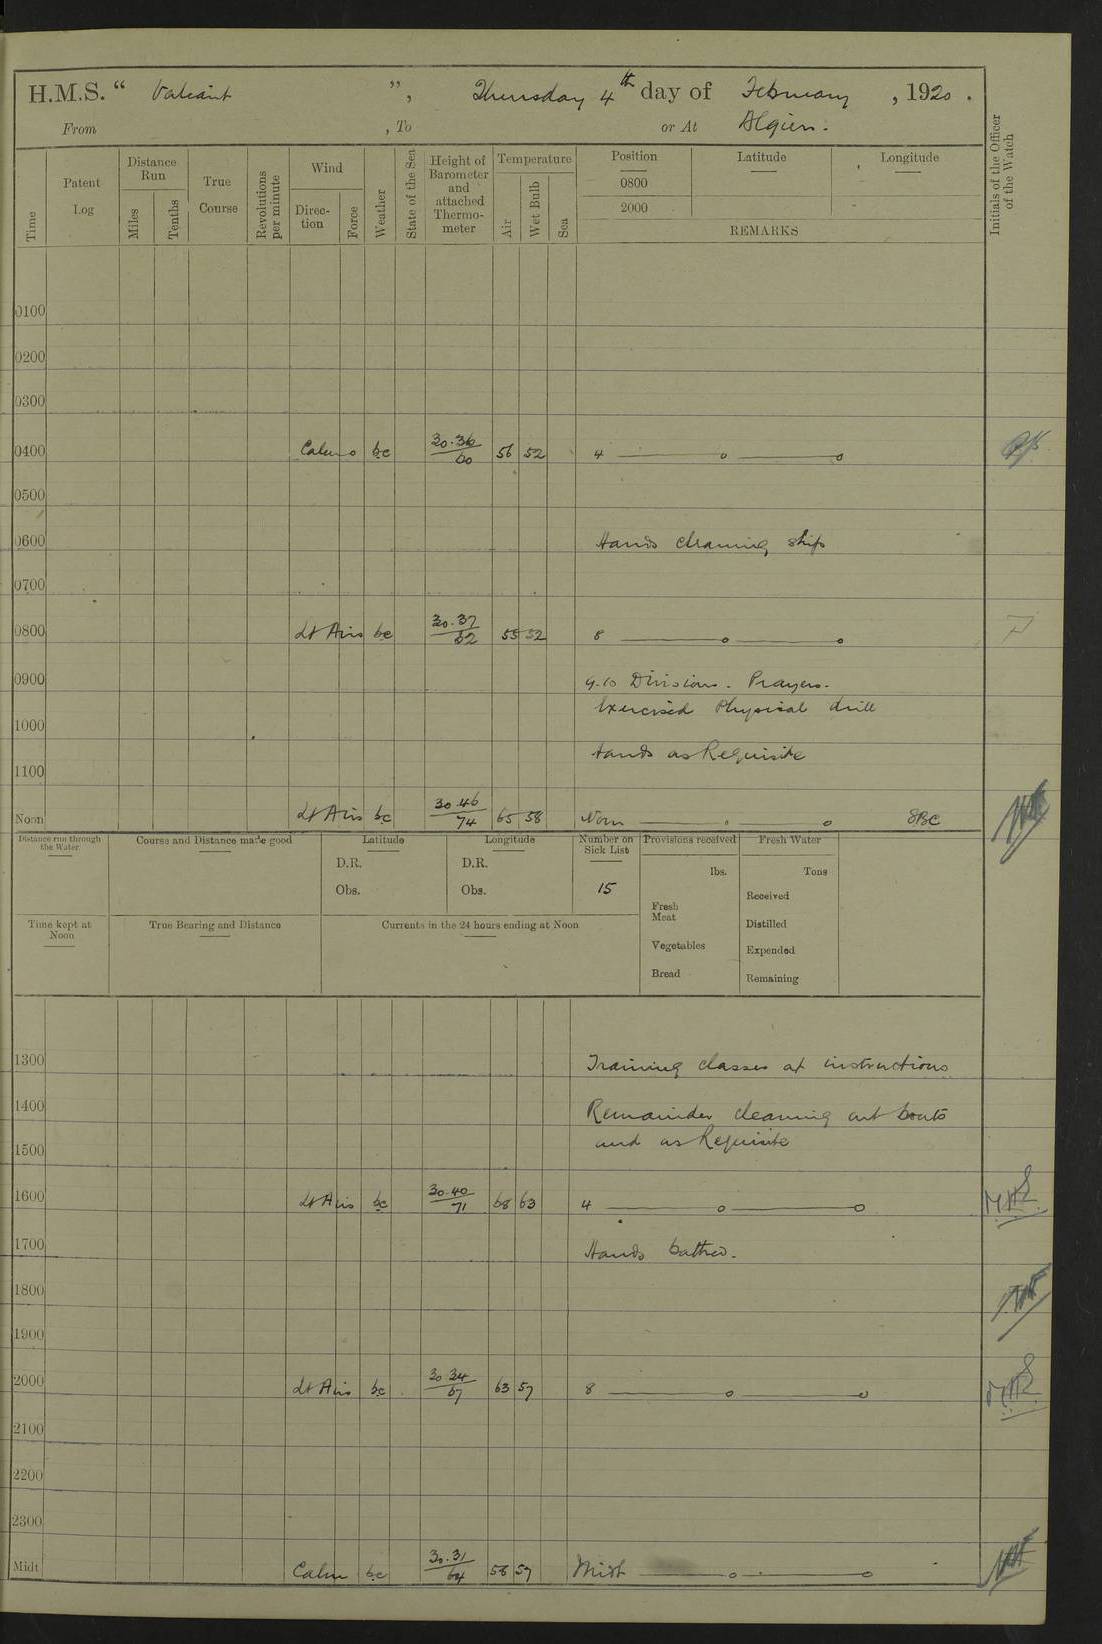 H.M.S. “ Valiant ”, Thursday 4th day of February, 1920.
From , To or At Algiers.
Time
Patent Log
Distance Run
Miles
Tenths
True Course
Revolutions per minute
Wind
Direction
Force
Weather
State of the Sea
Height of Barometer and attached Thermometer
Temperature
Air
Wet Bulb
Sea
Position Latitude Longitude
0800
2000
REMARKS
Initials of the Officer of the Watch
0100
0200
0300
0400 Calm 0 bc 30.36/60 56 52 4
0500
0600 Hands cleaning ship
0700
0800 Lt Airs bc 30.37/62 55 52 8
0900 9.10 Divisions. Prayers.
Exercised Physical drill
1000
Hands as Requisite
1100
Noon Lt Airs bc 30.46/74 65 58 Noon SBC
Distance run through the Water
Course and Distance made good
Latitude
D.R.
Obs.
Longitude
D.R.
Obs.
Number on Sick List
15
Provisions received
lbs.
Fresh Meat
Vegetables
Bread
Fresh Water
Tons
Received
Distilled
Expended
Remaining
Time kept at Noon
True Bearing and Distance
Currents in the 24 hours ending at Noon
1300 Training classes at instructions
1400 Remainder cleaning out boats
1500 and as Requisite
1600 Lt Airs bc 30.40/71 68 63 4
1700 Hands bathed.
1800
1900
2000 Lt Airs bc 30.34/67 63 57 8
2100
2200
2300
Midt Calm bc 30.31/64 58 57 Midt